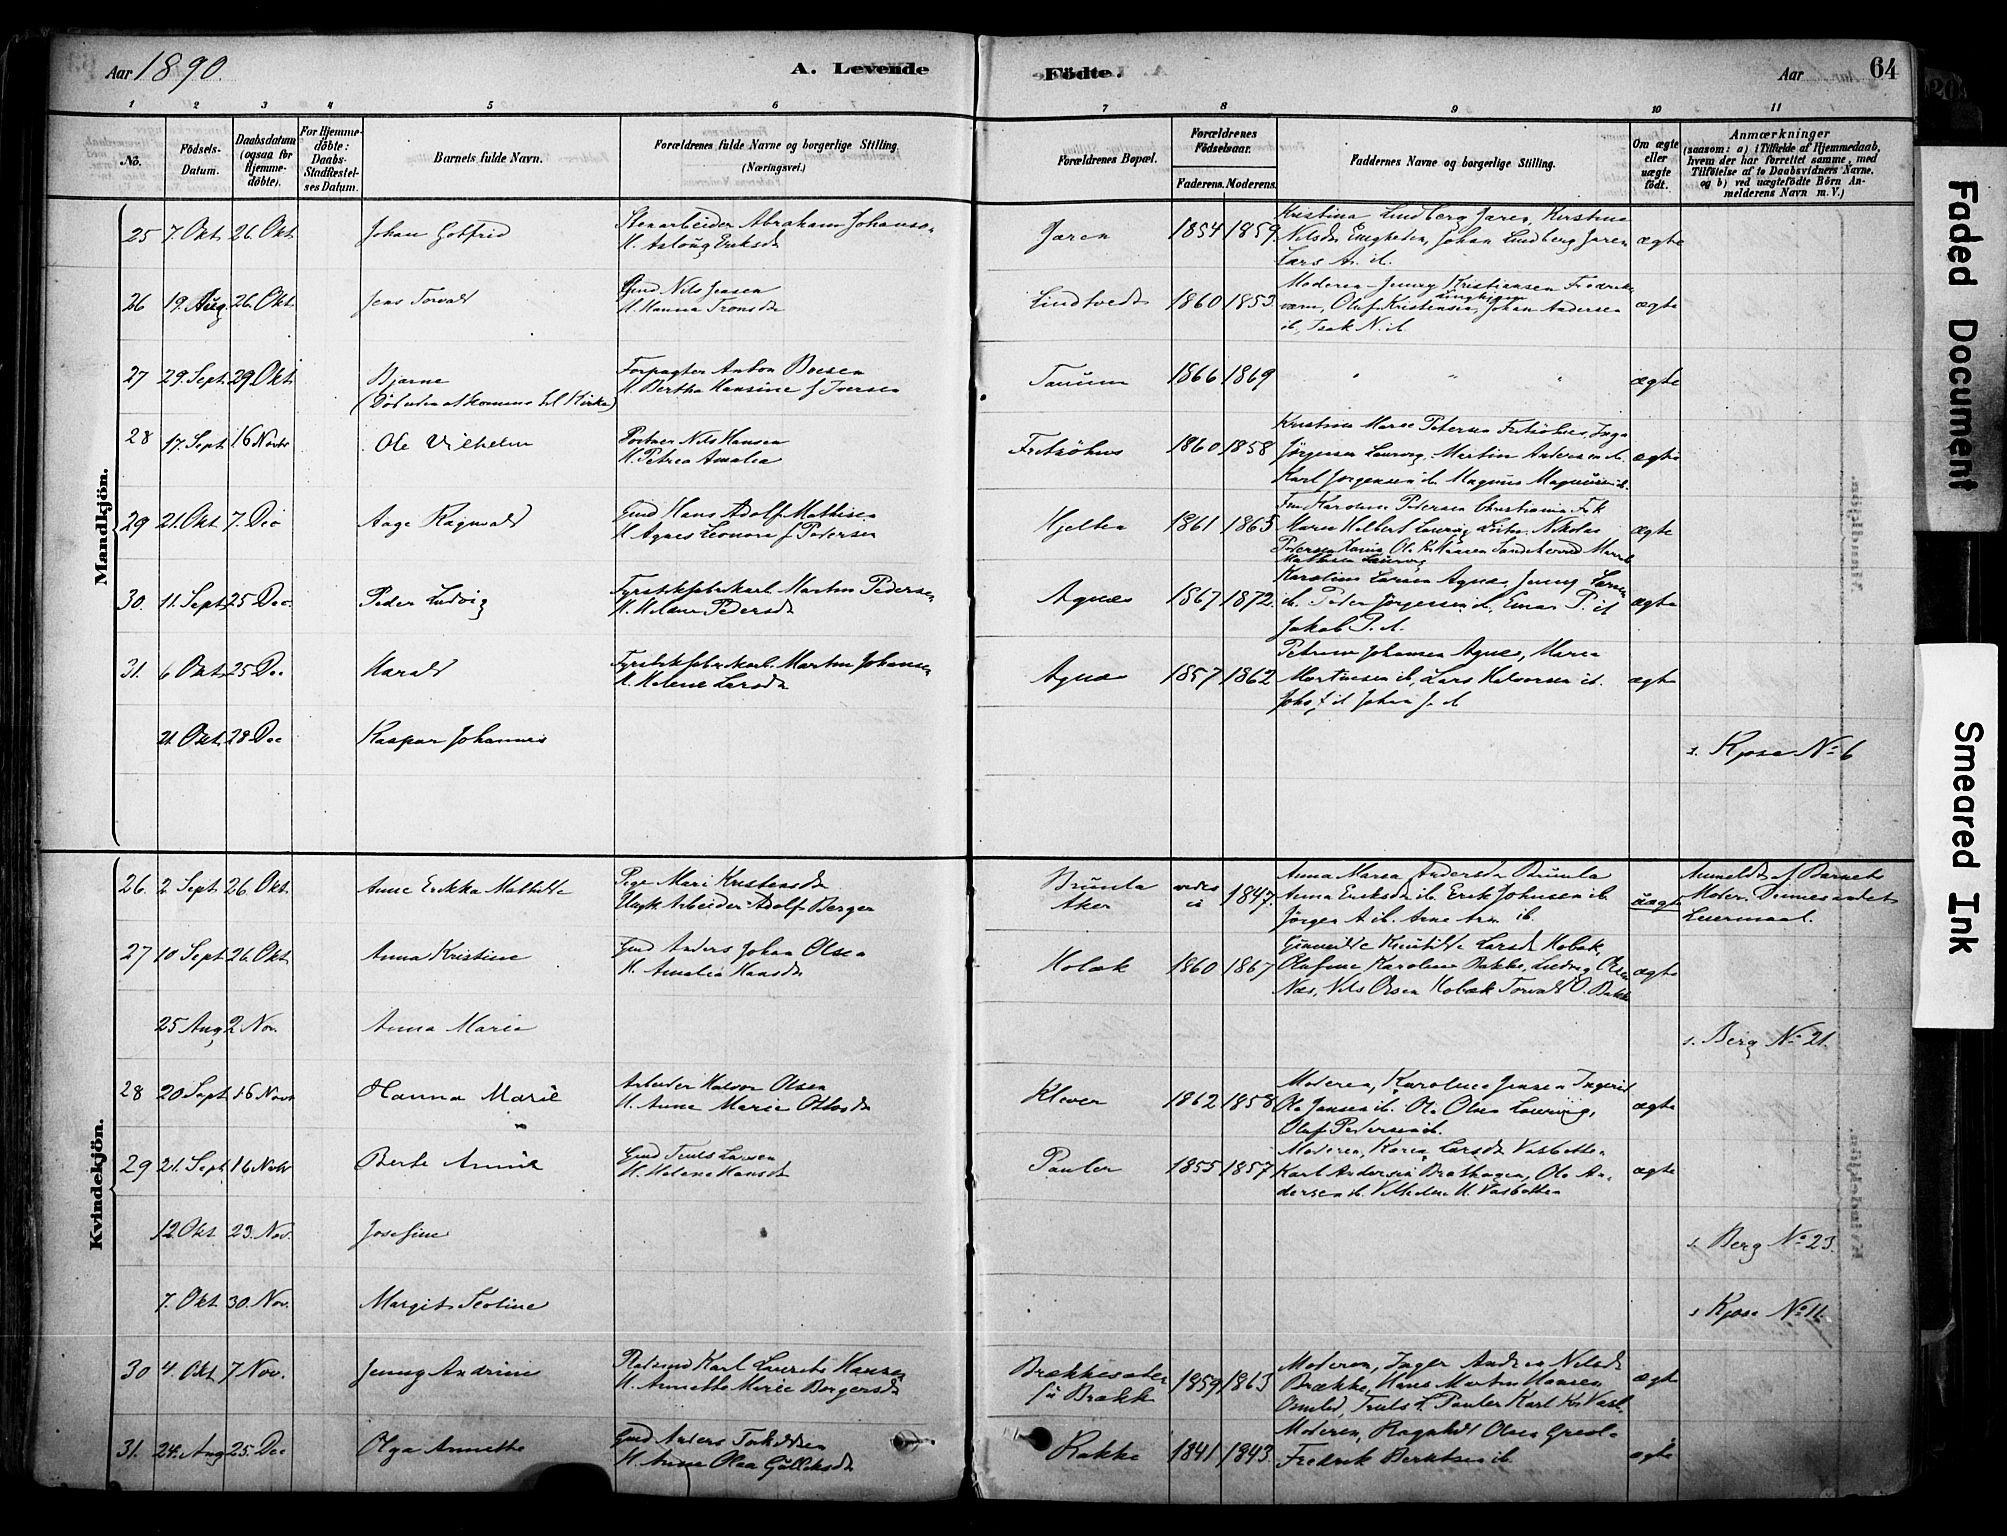 Aar 1890.
A. Levende
Födte.
Aar
64
1 2 3 4 5 6 7 8 9 10 11
No.
Födsels-
Datum.
Daabsdatum
(ogsaa for
Hjemme-
döbte).
For Hjemme-
döbte:
Daabs-
Stadfæstel-
ses Datum.
Barnets fulde Navn.
Forældrenes fulde Navne og borgerlige Stilling.
(Næringsvei.)
Forældrenes Bopæl.
Forældrenes
Födselsaar.
Faderens. Moderens.
Faddernes Navne og borgerlige Stilling.
Om ægte
eller
uægte
födt.
Anmærkninger
(saasom: a) i Tilfælde af Hjemmedaab,
hvem der har forrettet samme, med
Tilföielse af to Daabsvidners Navne,
og b) ved uægtefödte Börn An-
melderens Navn m. V.)
Mandkjön.
25 7 Okt 26 Okt Johan Gotfrid
Stenarbeider Abraham Johans
H. Aslaug Eriksd
Jaren 1854 1859
Kristina Lindberg Jaren, Kirstine
Nilsdr Enigheden, Johan Lindberg Jaren
Lars A. d.
ægte
26 19. Aug. 26. Okt Jens Torvald
Gmd Nils Jensen
H. Hanna Tronsd
Lindtvedt 1860 1853
Moderen, Jenny Kristiansen Fredriks
værn, Oluf Kristensen, Johan Andersen
ib, Isak N. d
ægte
27 29. Sept. 29 Okt Bjarne
Forpagter Anton Boesen
H. Bertha Hansine f Iversen
Tanum 1866 1869 " " " ægte
28 17. Sept 16 Novbr Ole Vilhelm
Portner Nils Hansen
H. Petrea Amalia
Fritzöhus 1860 1858
Kristine Marie Petersen Fritzöhus, Inga
Jörgensen Laurvig, Martin Andersen d.
Karl Jörgensen d. Magnus Magnusen d.
ægte
29 21. Okt 7. Dec Aage Ragnvald
Gmd Hans Adolf Mathisen
H. Agnes Leonora f Pedersen
Hjelten 1861 1865
Fru Karoline Pedersen Christiania Frk
Marie Helbert Laurvig Nikolai
ægte
30. 11. Sept. 25 Dec. Peder Ludvig
Fyrstikfabrikarb. Martin Pedersen
H. Helene Pedersd
Agnæs 1867 1872.
Karoline Larsen Agnæs, Jenny Larsen
d. Peter Jörgensen d, Einar P. d
Jakob P. d.
ægte
31. 6 Okt. 25 Dec Harald
Fyrstikfabrikarb. Martin Johansen
H. Helene Larsd
Agnæs 1857 1862
Petrine Johansen Agnæs, Maria
Mortensen ib, Lars Halvorsen ib.
Johs. J. d Johan J. d
ægte
21. Okt. 28 Dec Kaspar Johannes s. Kjose No 6
Kvindekjön.
26. 2 Sept 26 Okt. Anne Erikka Mathilde
Pige Mari Kristensd
Ungk Arbeider Adolf Berger
Brunla
Aker
1847.
Anna Maria Andersd Brunla
Anna Eriksd ib. Erik Johnsen ib.
Jörgen A ib. Arne Arn ib.
uægte
Anmeldt af Barnets
Moder. Dennes andet
Leiermaal.
27 10 Sept 26 Okt Anna Kristine
Gmd Anders Johan Olsen
H. Amalia Hansd
Holæk 1860 1867
Gunnilde Knutilde Larsd Holæk,
Olufine Karoline Bakke, Ludvig Olsen
Næs, Nils Olsen Holæk Torvald O. Bakke
ægte
25 Aug 2 Nov. Anna Maria s. Berg No 21.
28 20 Sept 16 Novbr Hanna Marie
Arbeider Halvor Olsen
H. Anne Marie Olsd
Klever 1862 1858
Moderen, Karoline Jensen Ingerid
Ole Jansen ib. Ole Olsen Laurvig,
Oluf Pedersen ib.
ægte
29 21. Sept 16 Novbr Berte Annie
Gmd Truls Larsen
H. Helene Hansdt
Pauler 1855 1857
Moderen, Karen Larsd Vasbotten
Karl Andersen Brathagen, Ole An-
dersen ib. Vilhelm H. Vasbotten
ægte
12 Okt 23. Nov. Josefine s. Berg No 23.
7. Okt 30. Nov. Margit Teoline s Kjose No 11.
30 4. Okt 7 Nov. Jenny Andrine
Pladsmd Karl Laurits Hansen
H. Annette Marie Borgersd
Brækkesæter
u Brække
1859 1863
Moderen, Inger Andrea Nilsd
Brække, Hans Martin Hansen
Omled, Truls L. Pauler Karl K. Vasb.
ægte
31. 24. Aug 25. Dec Olga Annette
Gmd Anders Torkildsen
H. Anne Olea Gulliksd
Rakke 1841 1843.
Moderen, Ragnhild Olsen
Fredrik Berntsen ib.
ægte
Faded Document
Smeared Ink